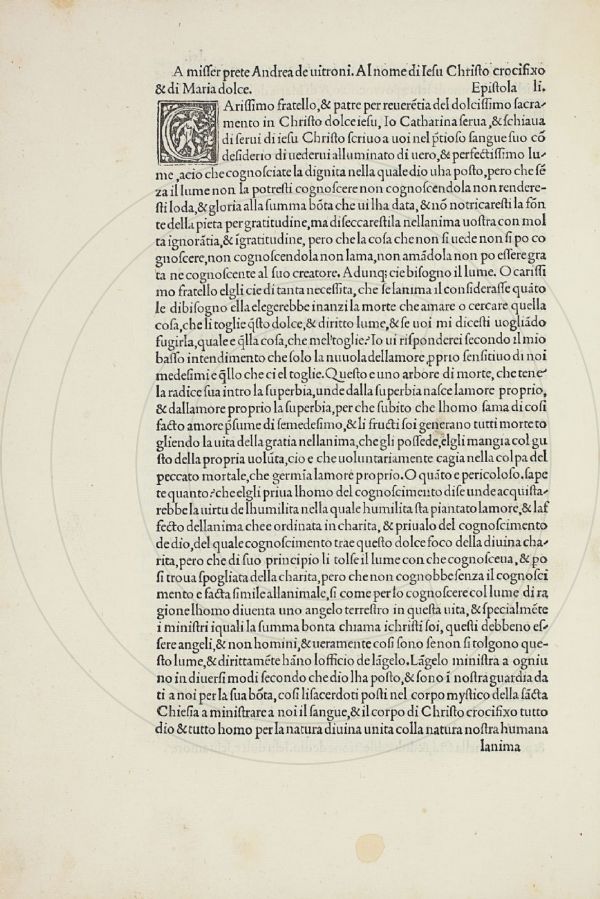 A misser prete Andrea de uitroni. Al nome di Iesu Christo crocifixo
& di Maria dolce. Epistola li.
CArissimo fratello, & patre per reuerẽtia del dolcissimo sacra-
mento in Christo dolce iesu, Io Catharina serua, & schiaua
di serui di iesu Christo scriuo a uoi nel p̃tioso sangue suo cõ
desiderio di uederui alluminato di uero, & perfectissimo lu-
me, acio che cognosciate la dignita nella quale dio uha posto, pero che sẽ
za il lume non la potresti cognoscere non cognoscendola non rendere-
sti loda, & gloria alla summa bõta che ui lha data, & nõ notricaresti la fõn
te della pieta per gratitudine, ma diseccarestila nellanima uostra con mol
ta ignorãtia, & ĩgratitudine, pero che la cosa che non si uede non si po co
gnoscere, non cognoscendola non lama, non amãdola non po essere gra
ta ne cognoscente al suo creatore. Adunq; cie bisogno il lume. O carissi
mo fratello elgli cie di tanta necessita, che se lanima il considerasse quãto
le dibisogno ella elegerebbe inanzi la morte che amare o cercare quella
cosa, che li toglie q̃sto dolce, & diritto lume, & se uoi mi dicesti uogliãdo
fugirla, quale e q̃lla cosa, che mel toglie? Io ui risponderei secondo il mio
basso intendimento che solo la nuuola dellamore, pprio sensitiuo di noi
medesimi e q̃llo che ci el toglie. Questo e uno arbore di morte, che tene
la radice sua intro la superbia, unde dalla superbia nasce lamore proprio,
& dallamore proprio la superbia, per che subito che lhomo sama di cosi
facto amore p̃sume di se medesimo, & li fructi soi generano tutti morte to
gliendo la uita della gratia nellanima, che gli possede, elgli mangia col gu
sto della propria uolũta, cio e che uoluntariamente cagia nella colpa del
peccato mortale, che germĩa lamore proprio. O quãto e pericoloso. sape
te quanto? che elgli priua lhomo del cognoscimento di se unde acquista-
rebbe la uirtu de lhumilita nella quale humilita sta piantato lamore, & laf
fecto dellanima che e ordinata in charita, & priualo del cognoscimento
de dio, del quale cognoscimento trae questo dolce foco della diuina cha-
rita, pero che di suo principio li tolse il lume con che cognosceua, & po
si troua spogliata della charita, pero che non cognobbe senza il cognosci
mento e facta simile allanimale, si come per lo cognoscere col lume di ra
gione lhomo diuenta uno angelo terrestro in questa uita, & specialmẽte
i ministri iquali la summa bonta chiama ichristi soi, questi debbeno es-
sere angeli, & non homini, & ueramente cosi sono se non si tolgono que-
sto lume, & dirittamẽte hãno lofficio de lãgelo. Lãgelo ministra a ogniu
no in diuersi modi secondo che dio lha posto, & sono i nostra guardia da
ti a noi per la sua bõta, cosi lisacerdoti posti nel corpo mystico della sãcta
Chiesia a ministrare a noi il sangue, & il corpo di Christo crocifixo tutto
dio & tutto homo per la natura diuina unita colla natura nostra humana
lanima